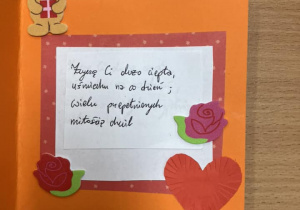 Życzę Ci dużo ciepła,
uśmiechu na co dzień i
wielu przepełnionych
miłością chwil